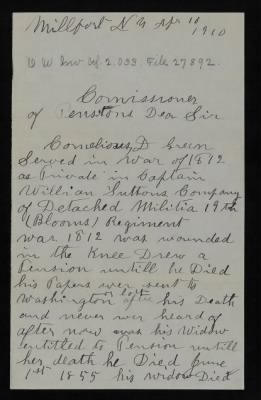 Millport N Y Apr 10
1910
O W Inv Cf. 2.033. File 27892.
Comissioner
of Penstons Dear Sir
Cornelious D Green
Served in War of 1812
as Private in Captain
Willian Suttons Company
of Detached Militia 19th
(Blooms) Regiment
war 1812 was wounded
in the Knee Drew a
Pension untill he Died
his Papers wer sent to
Washington or lost after his Death
and never wer heard of
after now was his Widow
entitled to Pension untill
her death he Died June
1st 1855 his widow Died